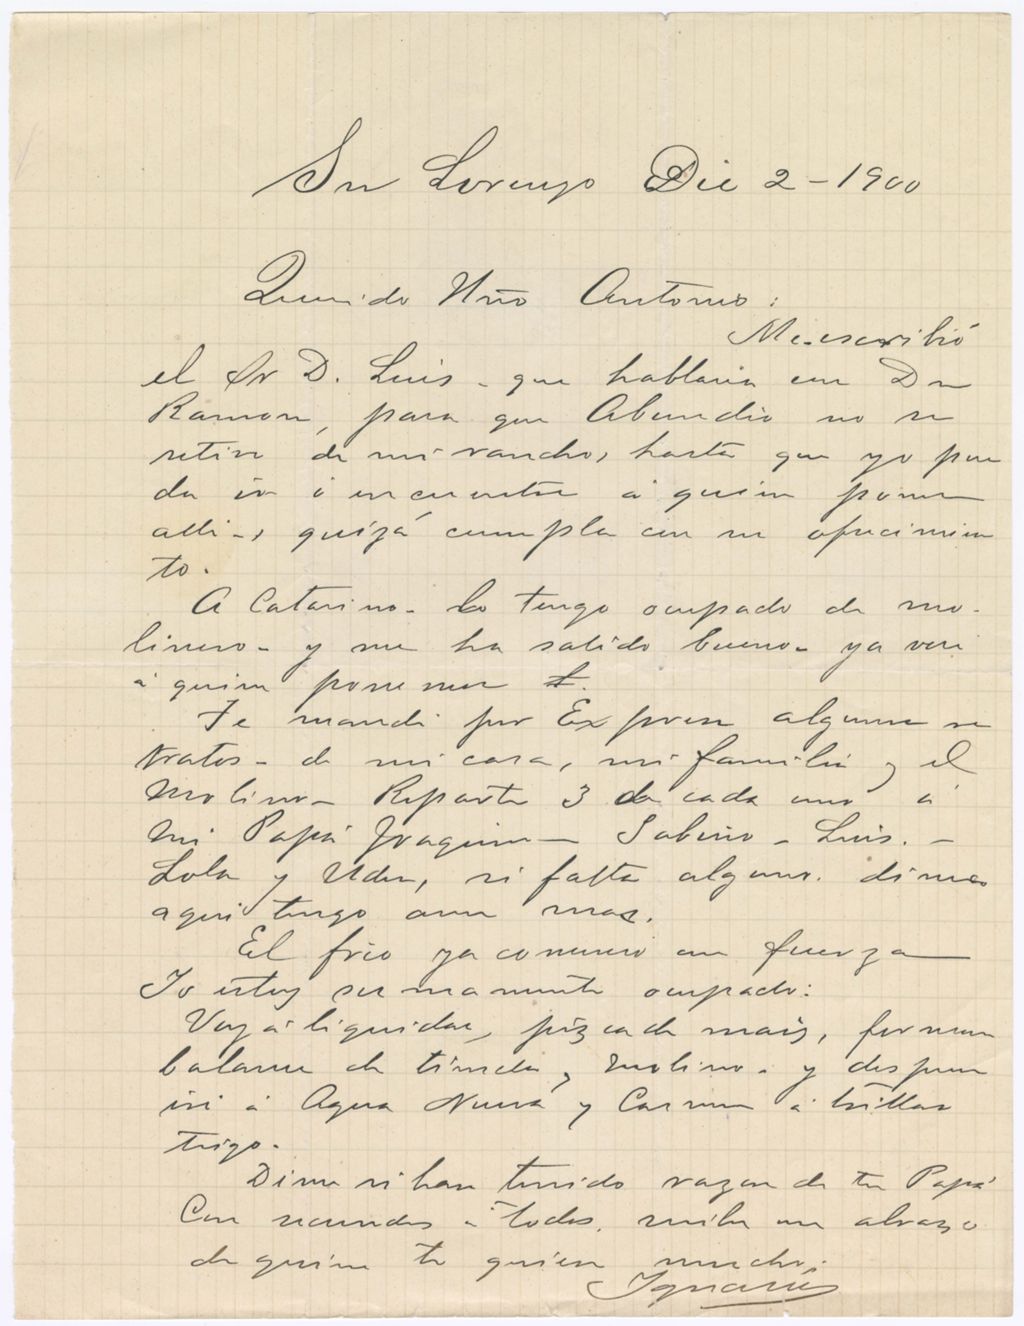 Sn Lorenzo Dic 2-1900
Querido Antonio:
Me escribió
el Sr D. Luis - que hablaria con Dn
Ramon, para que Abundio no se
retire de mi rancho, hasta que yo pue
da ir ó encuentre á quien poner
alli -, quizá cumpla con su ofrecimien
to.
A Catarino - lo tengo ocupado de mo-
linero - y me ha salido bueno - ya veré
á quien ponemos
Te mandé por Expreso algunos re
tratos - de mi casa, mi familia y el
Molino - Reparte 3 de cada uno á
Mi Papá Joaquin - Sabino - Luis. -
Lola y Udes, si falta alguno. dimelo
aqui tengo aun mas.
El frio ya comenzó con fuerza
Yo estoy sumamente ocupado:
Voy á liquidar, pizca de mais, formar
balance de tienda, molino - y despues
iré á Agua Nueva y Carmen á trillar
trigo.
Dime si han tenido razon de tu Papá
Con recuerdos á todos. recibe un abrazo
de quien te quiere mucho.
Ignacio